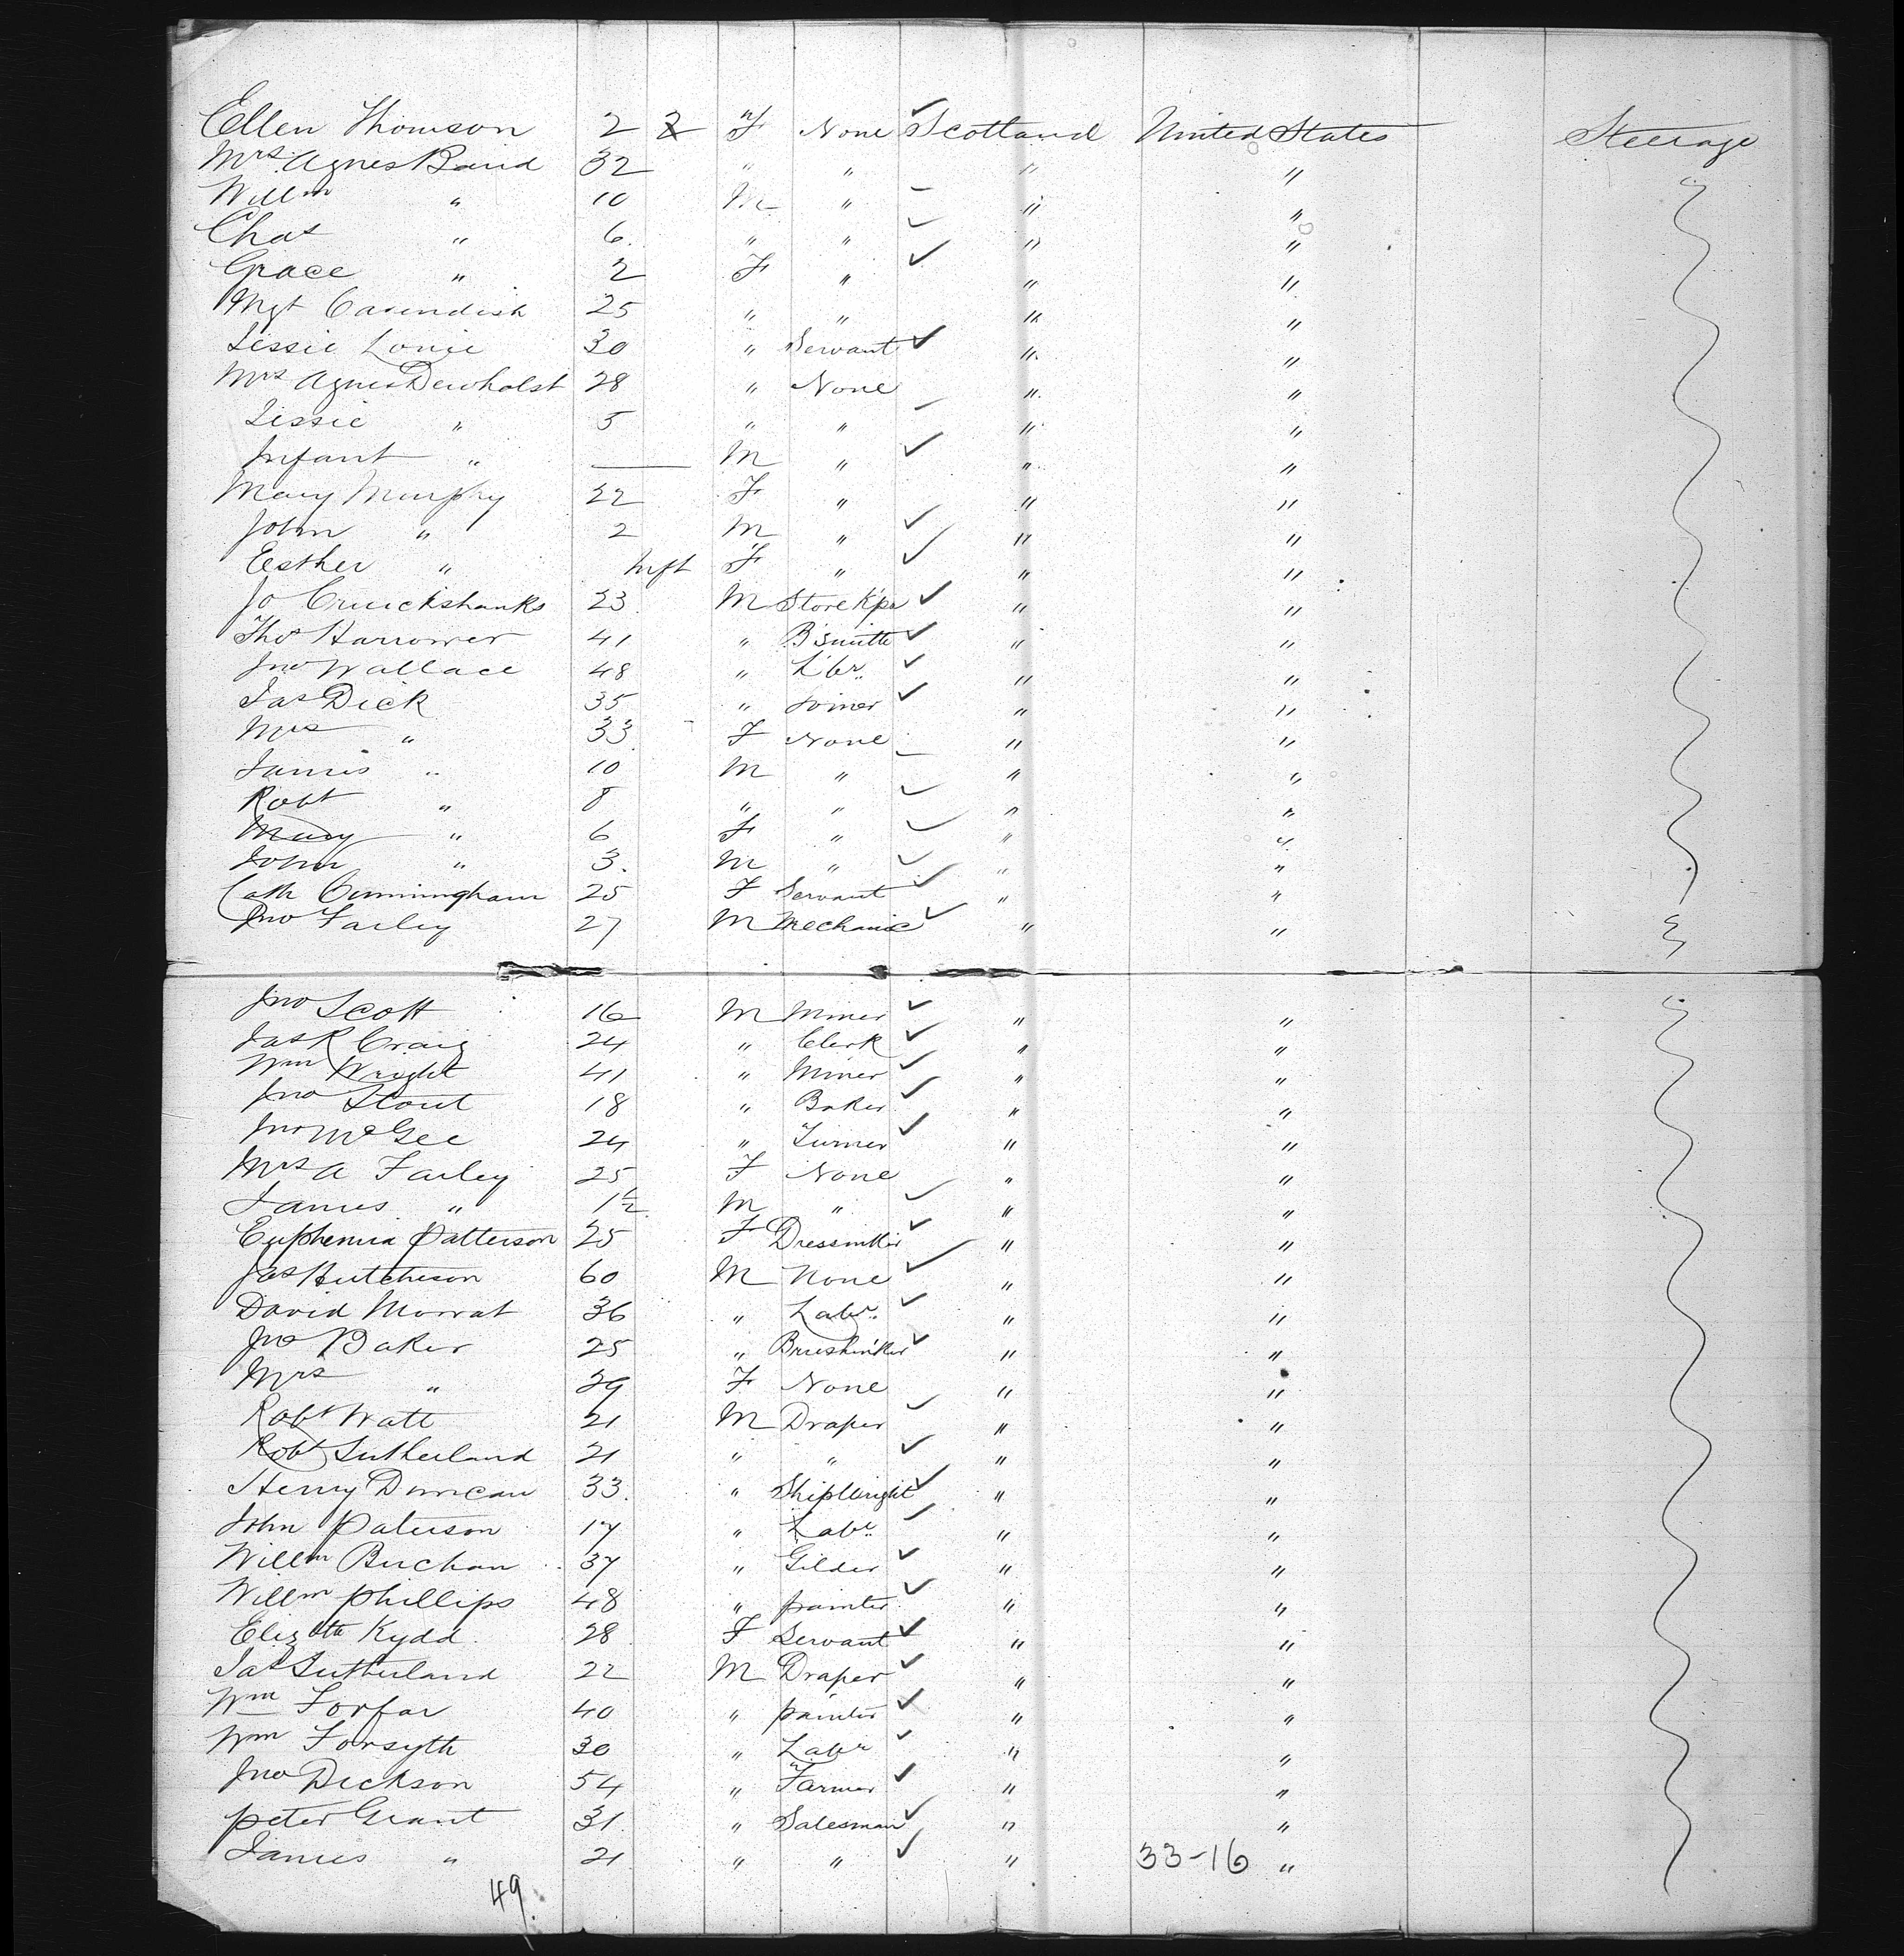 Ellen Thomson 2 2 F None Scotland United States Steerage
Mrs Agnes Baird 32 " " " "
Willm " 10 M " " "
Chas " 6 " " " "
Grace " 2 F " " "
Mgt Cavendish 25 " " " "
Jessie Louie 30 " Servant " "
Mrs Agnes Dewholst 28 " None " "
Jessie " 5 " " " "
Infant " — M " " "
Mary Murphy 22 F " " "
John " 2 M " " "
Eesther " Inft F " " "
Jo Cruickshanks 23 M Store K'pr " "
Thos Harrower 41 " B'smith " "
Jno Wallace 48 " L'br " "
Jas Dick 35 " Joiner " "
Mrs " 33 F None " "
James " 10 M " " "
Robt " 8 " " " "
Mary " 6 F " " "
John " 3 M " " "
Cath Cunningham 25 F Servant " "
Jno Farley 27 M Mechanic " "
Jno Scott 16 M Miner " "
Jas R Craig 24 " Clerk " "
Wm Wright 41 " Miner " "
Jno Stout 18 " Baker " "
Jno McGee 24 " Turner " "
Mrs A Farley 25 F None " "
James " 1½ M " " "
Euphemia Patterson 25 F Dressm'ker " "
Jas Hutcheson 60 M None " "
David Morrat 36 " Labr " "
Jno Baker 25 " Brushm'ker " "
Mrs " 29 F None " "
Robt Watt 21 M Draper " "
Robt Sutherland 21 " " " "
Henry Duncan 33 " ShipWright " "
John Paterson 17 " Labr " "
Willm Buchan 37 " Gilder " "
Willm Phillips 48 " painter " "
Elizbth Kydd 28 F Servant " "
Jas Sutherland 22 M Draper " "
Wm Forfar 40 " painter " "
Wm Forsyth 30 " Labr " "
Jno Dickson 54 " Farmer " "
peter Grant 31 " Salesman " "
James " 21 " " " 33-16 "
49.